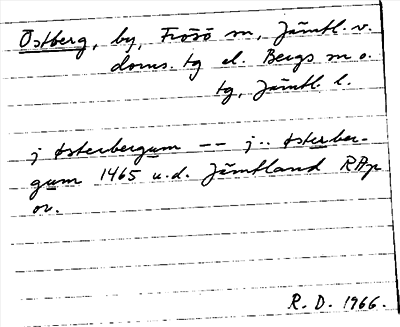 Östberg, by, Frösö sn, Jämtl. v.
doms. tg el. Bergs sn o.
tg, Jämtl. l.
j østerbergum -- j.. østerber-
gum 1465 u.d. Jämtland RAp
or.
R. D. 1966.